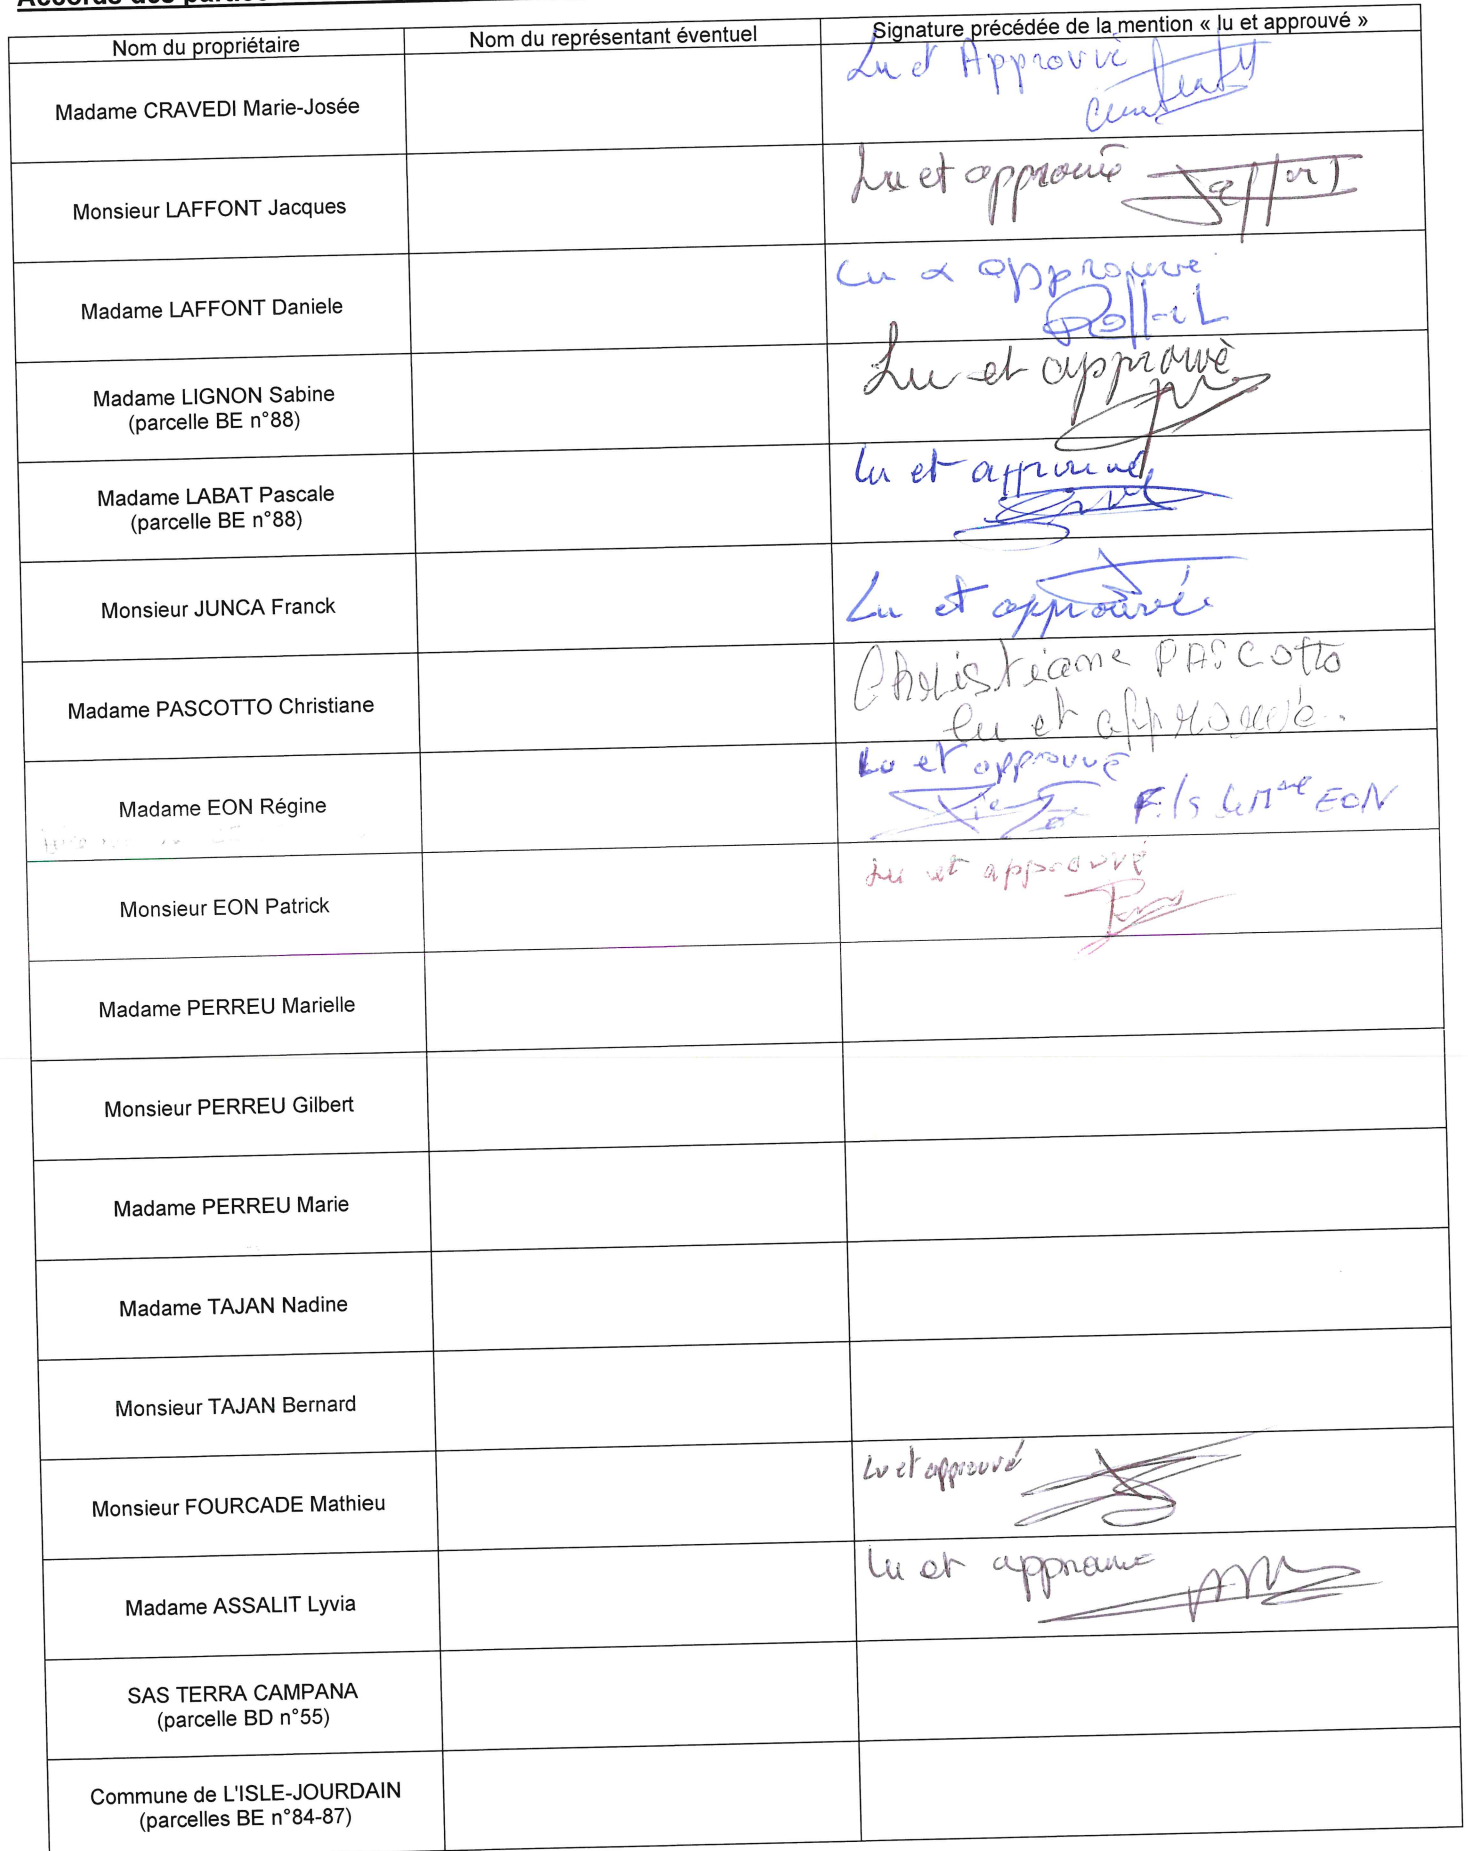 Nom du propriétaire Nom du représentant éventuel Signature précédée de la mention « lu et approuvé »
Madame CRAVEDI Marie-Josée
Lu et Approuvé
Monsieur LAFFONT Jacques
Lu et approuvé
Laffont
Madame LAFFONT Daniele
Lu & approuvé
Madame LIGNON Sabine
(parcelle BE n°88)
Lu et approuvé
Madame LABAT Pascale
(parcelle BE n°88)
lu et approuvé
Monsieur JUNCA Franck
Lu et approuvée
Madame PASCOTTO Christiane
Christiane PASCOTTO
lu et approuvé.
Madame EON Régine
Lu et approuvé
Fils de Mme EON
Monsieur EON Patrick
Lu et approuvé
Madame PERREU Marielle
Monsieur PERREU Gilbert
Madame PERREU Marie
Madame TAJAN Nadine
Monsieur TAJAN Bernard
Monsieur FOURCADE Mathieu
Lu et approuvé
Madame ASSALIT Lyvia
lu et approuvé
SAS TERRA CAMPANA
(parcelle BD n°55)
Commune de L'ISLE-JOURDAIN
(parcelles BE n°84-87)